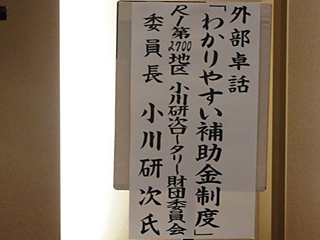 外部卓話
「わかりやすい補助金制度」
RI第2700地区 小川研次ロータリー財団委員会
委員長 小川研次氏